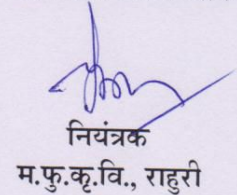 नियंत्रक
म.फु.कृ.वि., राहुरी